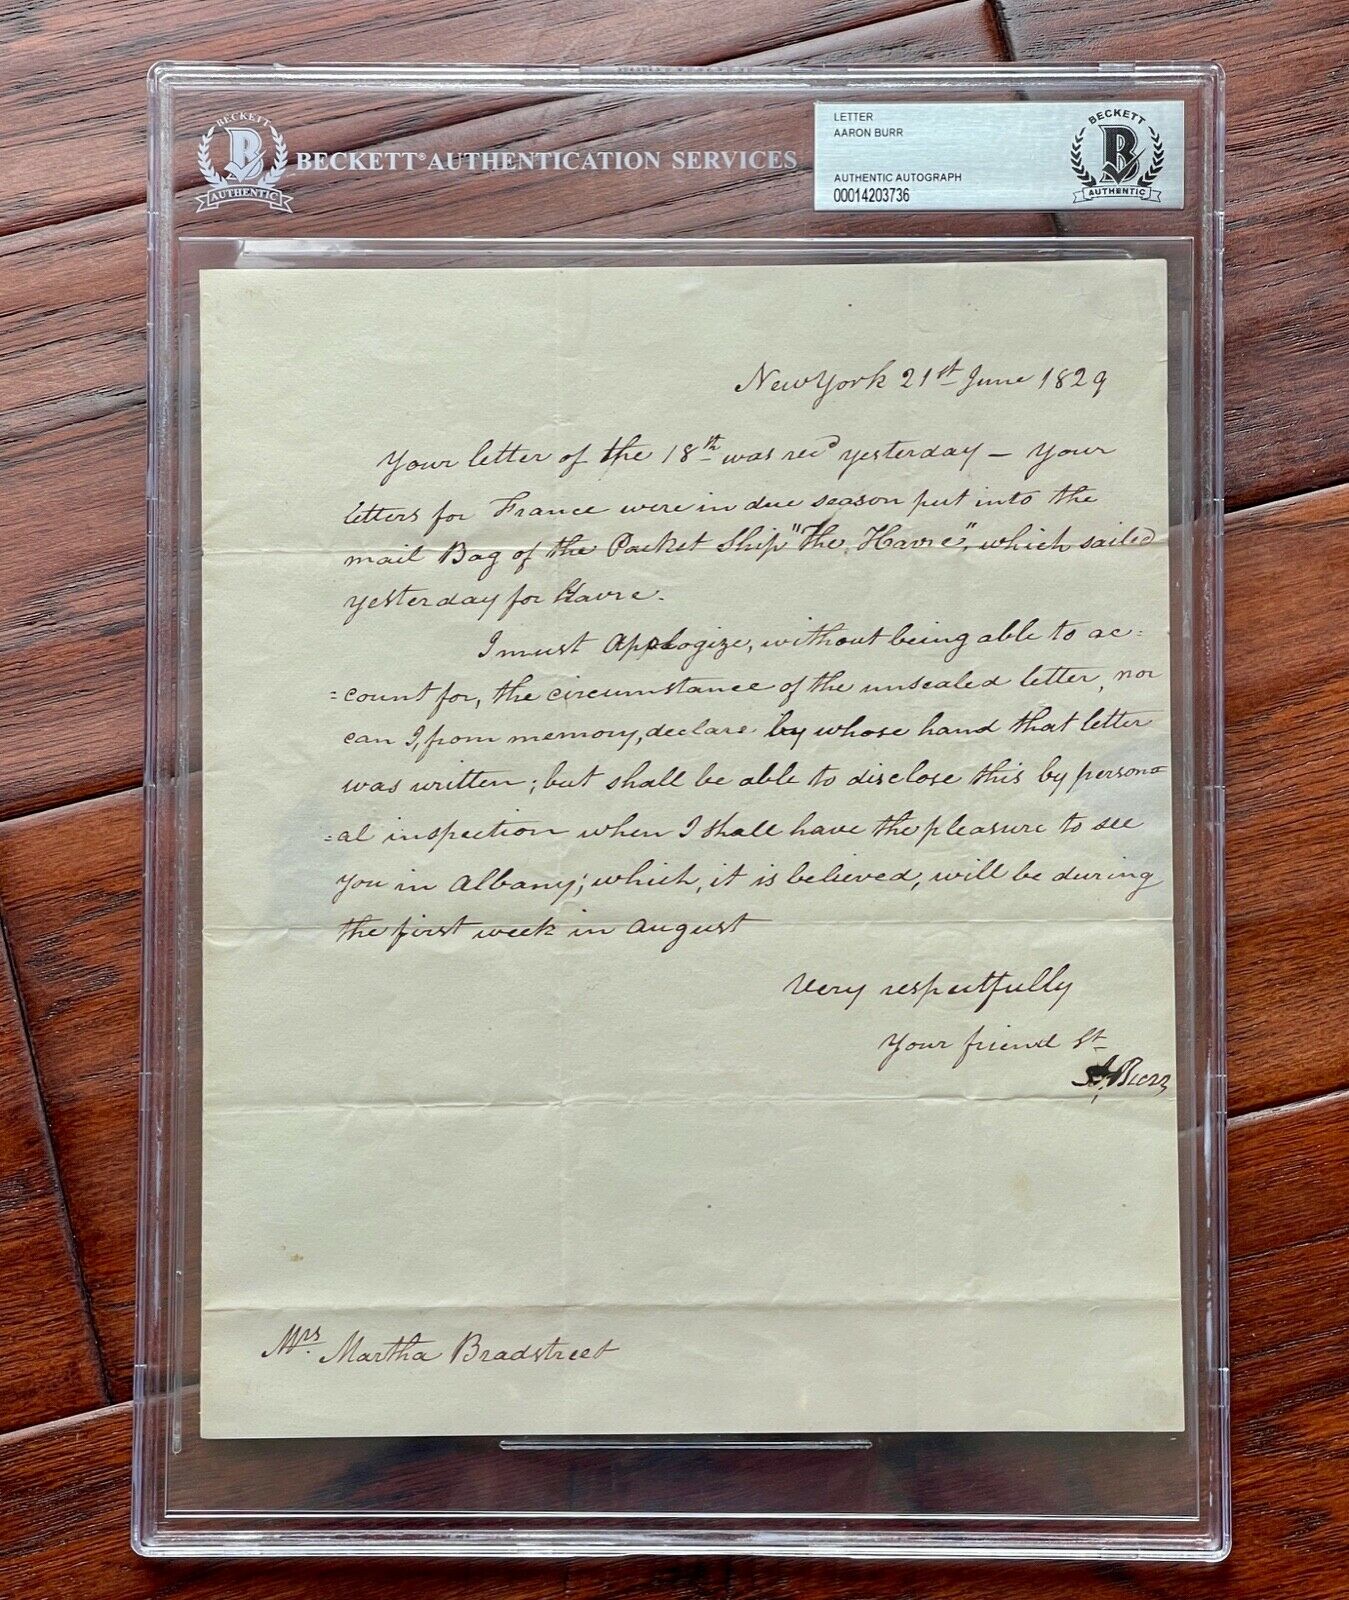 BECKETT
B
AUTHENTIC
BECKETT® AUTHENTICATION SERVICES
LETTER
AARON BURR
AUTHENTIC AUTOGRAPH
00014203736
BECKETT
B
AUTHENTIC
New York 21st June 1829
Your letter of the 18th was recd yesterday – Your
letters for France were in due season put into the
mail Bag of the Packet Ship "The Havre", which sailed
yesterday for Havre.
I must Apologize, without being able to ac=
=count for, the circumstance of the unsealed letter, nor
can I, from memory, declare by whose hand that letter
was written; but shall be able to disclose this by person=
=al inspection when I shall have the pleasure to see
you in Albany; which, it is believed, will be during
the first week in August
Very respectfully
Your friend St
A. Burr
Mrs. Martha Bradstreet